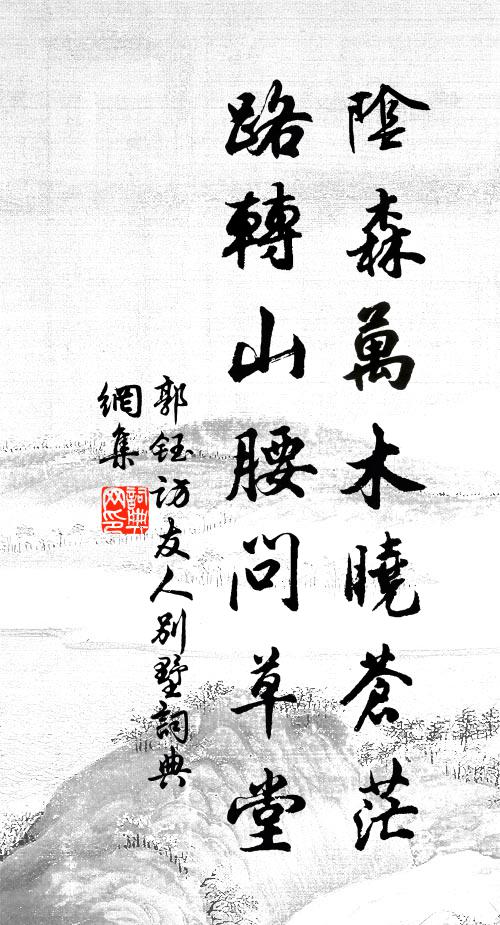 陰森萬木曉蒼茫
路轉山腰問草堂
郭鈺訪友人別墅詞典
網集
詞典
网印